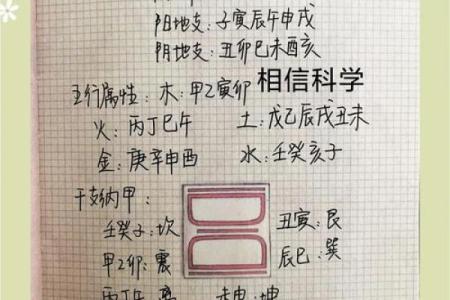 阳地支:子寅辰午申戌
阴地支:丑卯巳未酉亥
五行属性:木:甲乙寅卯
相信科学
火:丙丁巳午 土:戊己辰戌丑未
金:庚辛申酉 水:壬癸亥子
干支纳甲:
壬癸子:坎 丑寅:艮
甲乙卯:震 辰巳:巽
丙丁午:离 未申:坤